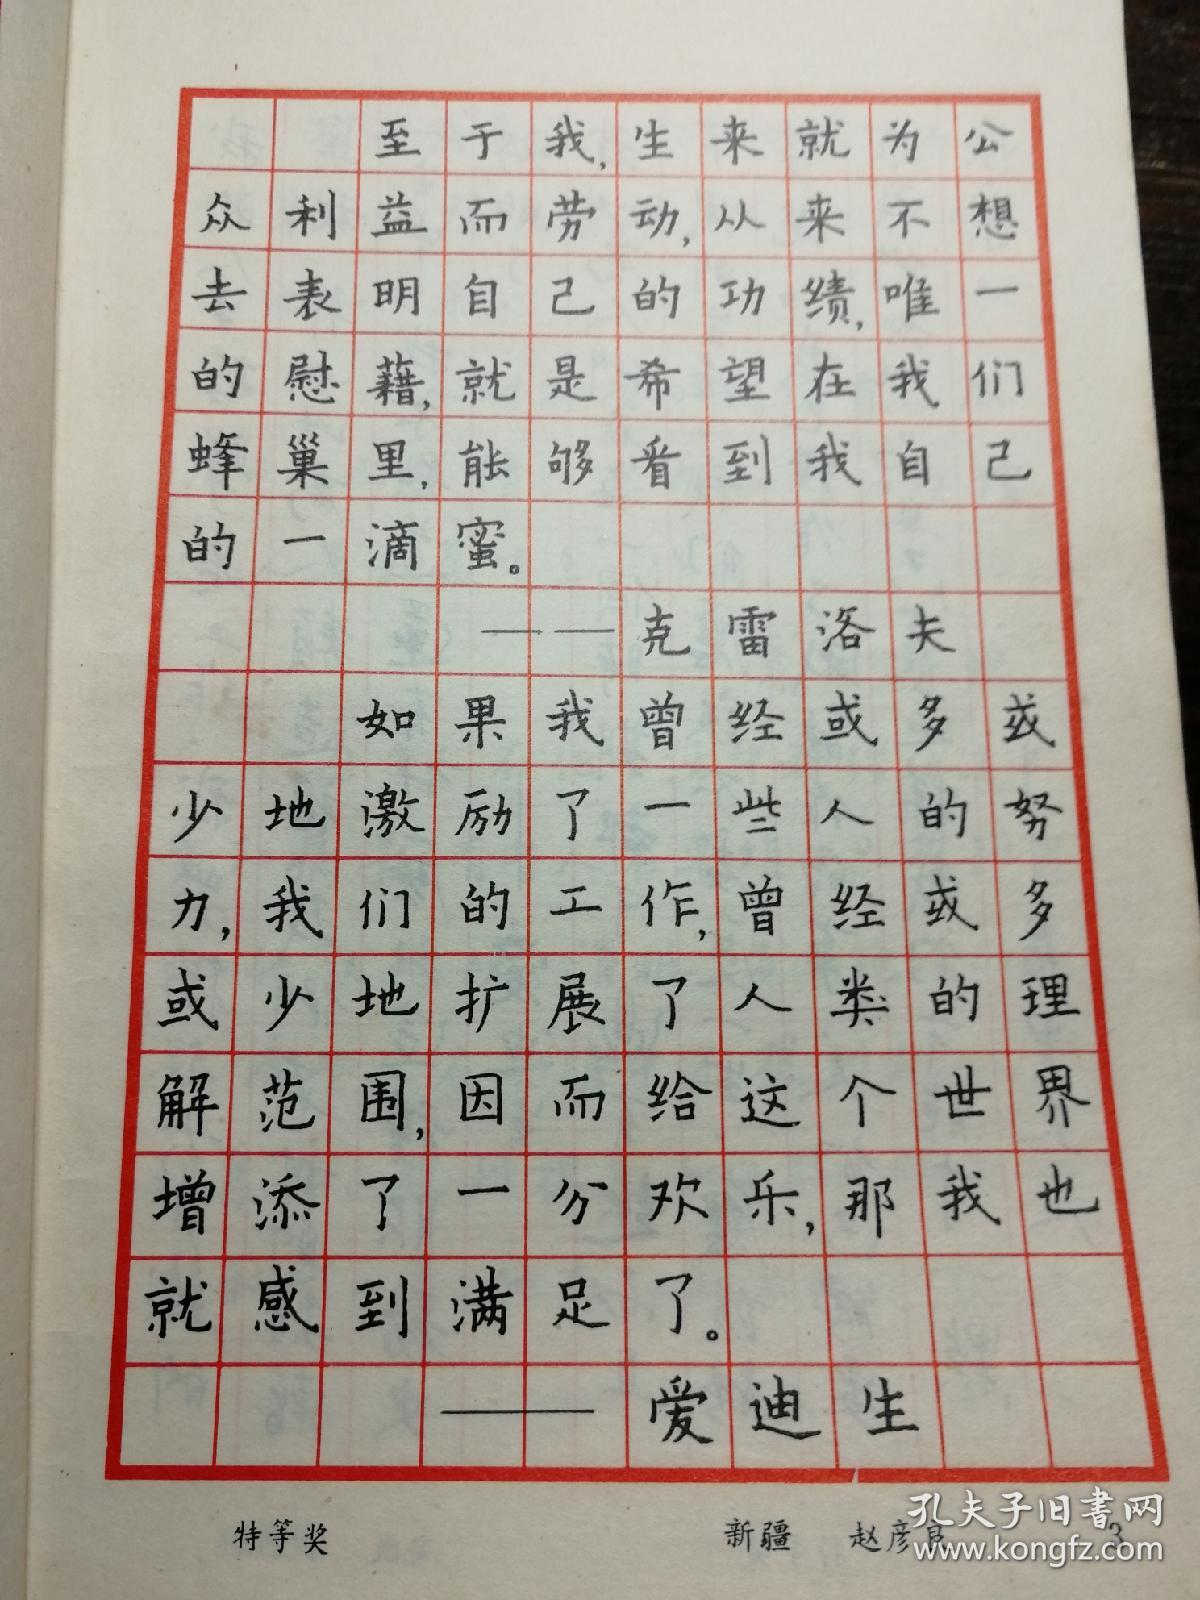 至于我,生来就为公
众利益而劳动,从来不想
去表明自己的功绩,唯一
的慰藉,就是希望在我们
蜂巢里,能够看到我自己
的一滴蜜。
——克雷洛夫
如果我曾经或多或
少地激励了一些人的努
力,我们的工作,曾经或多
或少地扩展了人类的理
解范围,因而给这个世界
增添了一分欢乐,那我也
就感到满足了。
——爱迪生
特等奖 新疆 赵彦良 3
孔夫子旧书网
www.kongfz.com